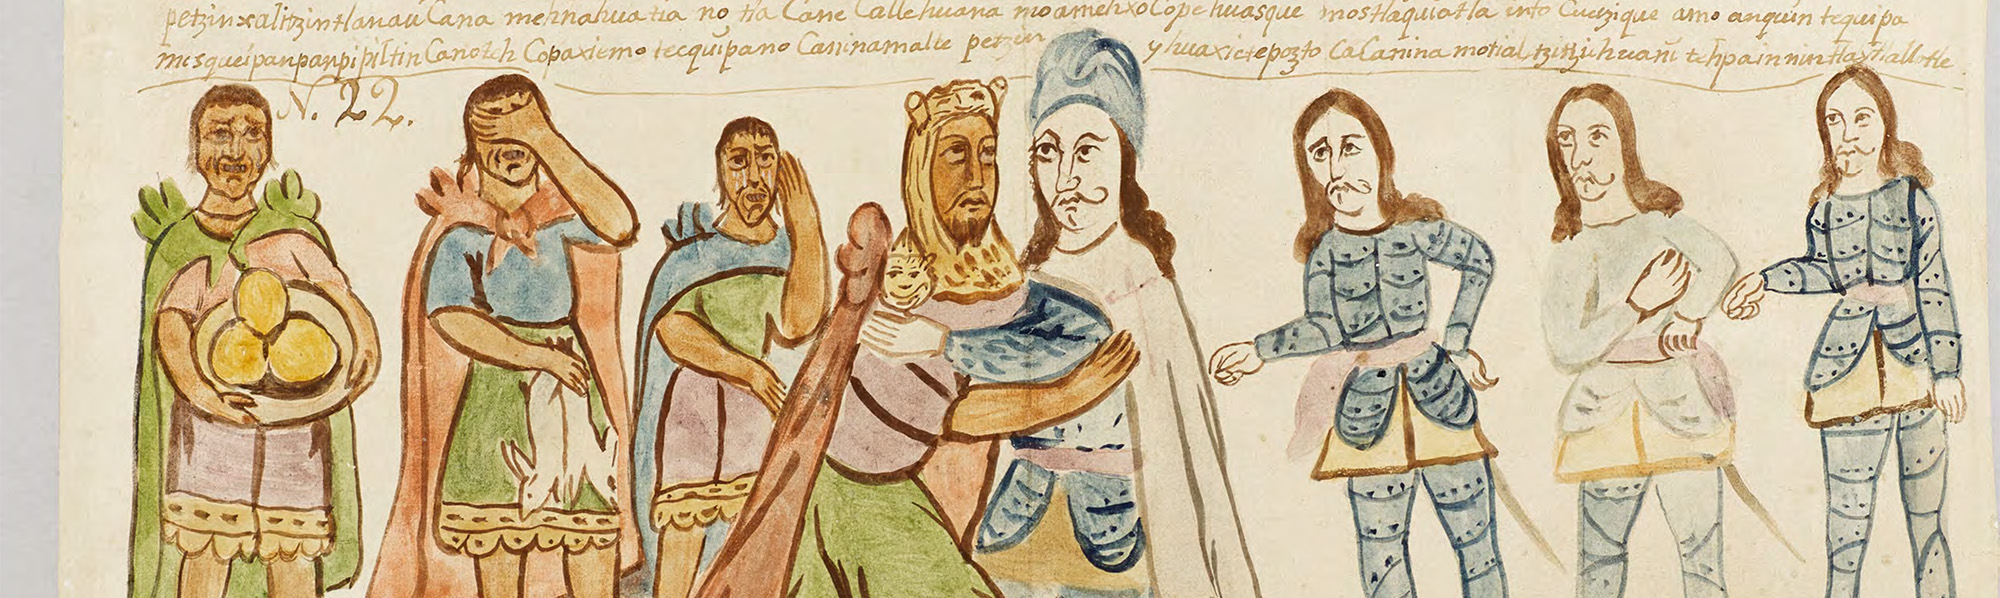 petzinxalitzintlanau Cana mehnahuatia no tla Cane Callehuana moamehxoCopehuasque mostlaquiatla into Cuezique amo anquin tequipa
mesqueipanpanpipiltin Canotch Copaxiemo tecquipano Caninamalte petzin y huaxictepozto CaCanina motial tehpain
N. 22.